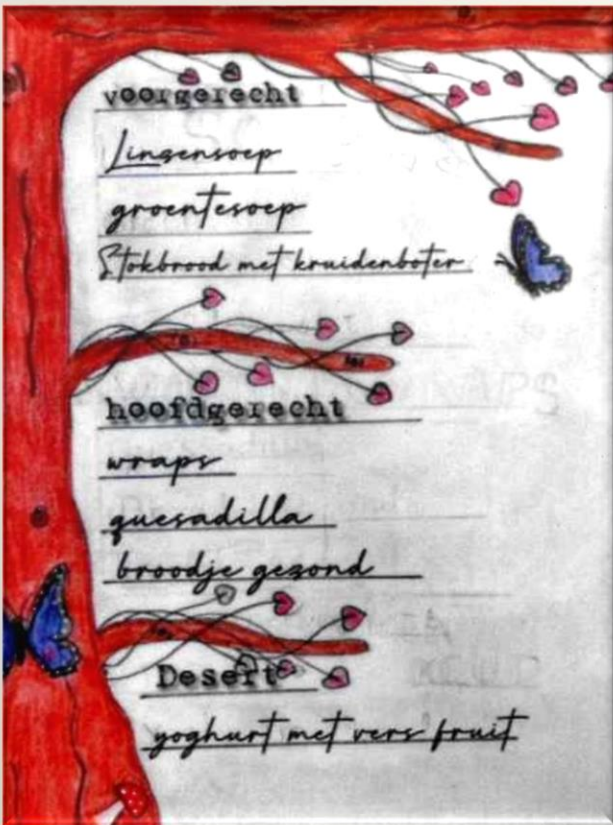 voorgerecht
Linzensoep
groentesoep
Stokbrood met kruidenboter
hoofdgerecht
wraps
quesadilla
broodje gezond
Desert
yoghurt met vers fruit